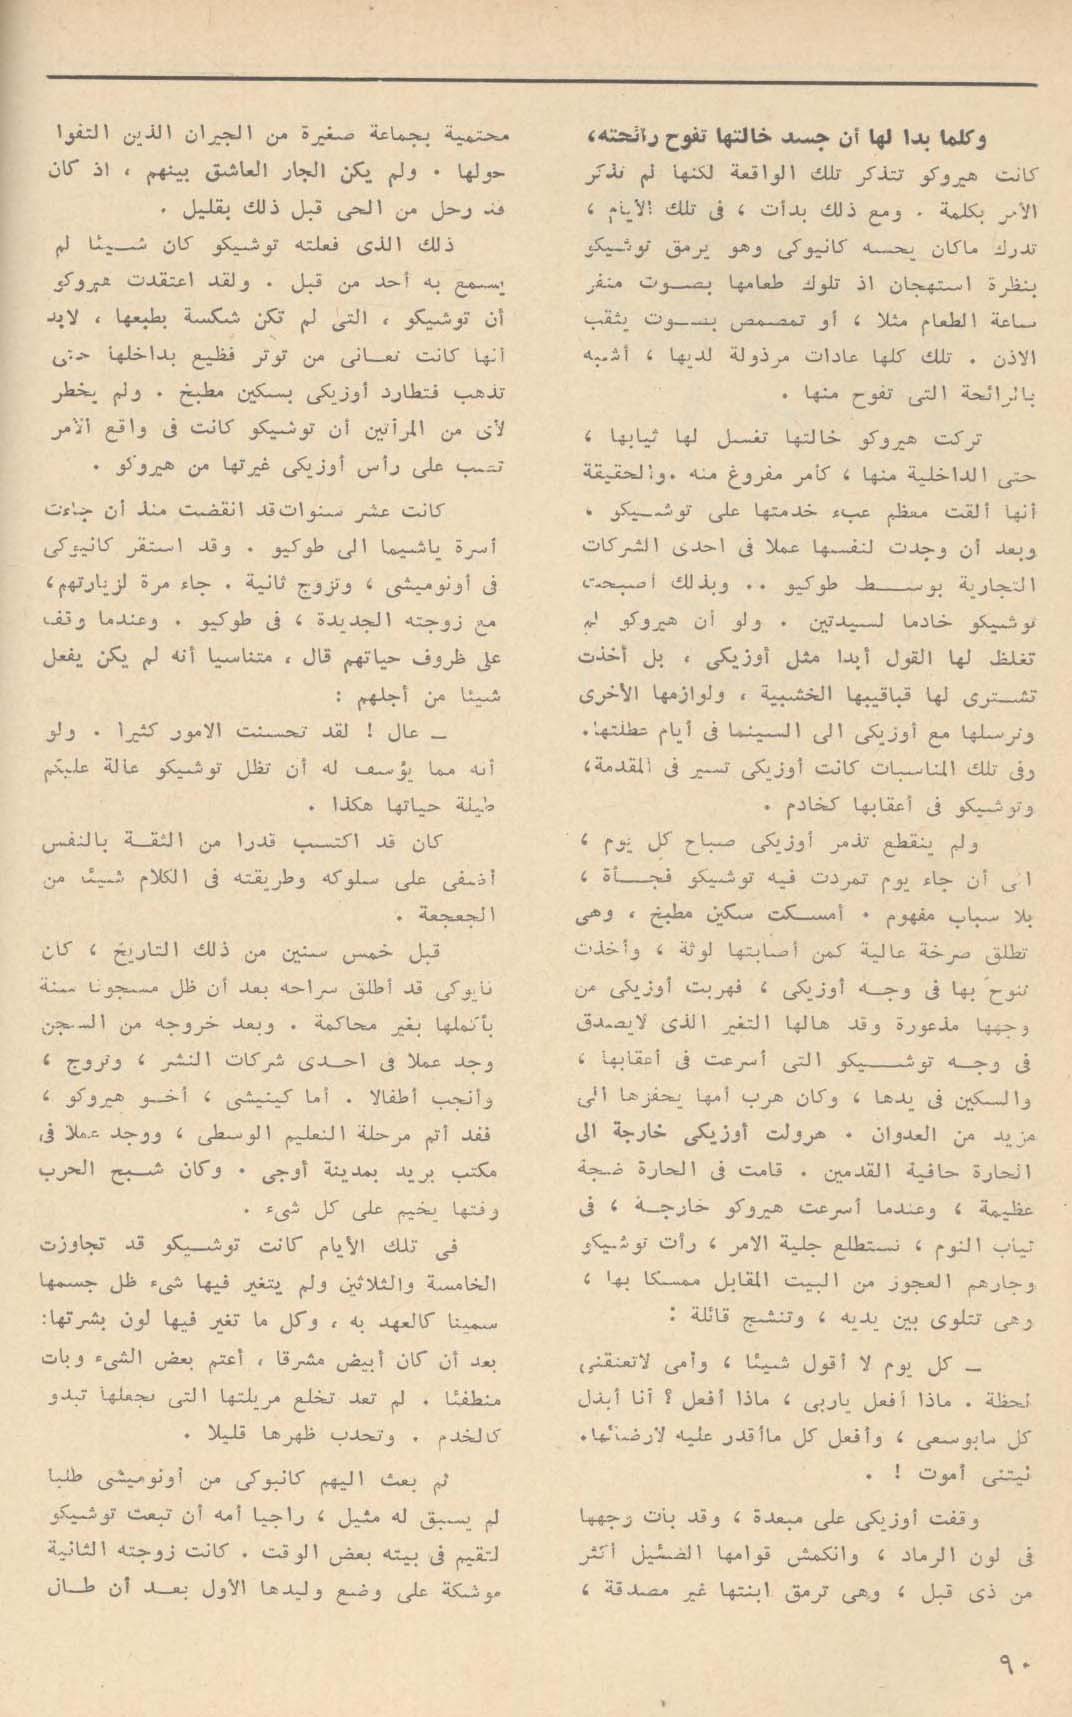 وكلما بدا لها أن جسد خالتها تفوح رائحته،
كانت هيروكو تتذكر تلك الواقعة لكنها لم تذكر
الأمر بكلمة . ومع ذلك بدأت ، فى تلك الأيام ،
تدرك ماكان يحسه كانيوكى وهو يرمق توشيكو
بنظرة استهجان اذ تلوك طعامها بصوت منفر
ساعة الطعام مثلا ، أو تمصمص بصوت يثقب
الاذن . تلك كلها عادات مرذولة لديها ، أشبه
بالرائحة التى تفوح منها .
تركت هيروكو خالتها تغسل لها ثيابها ،
حتى الداخلية منها ، كأمر مفروغ منه .والحقيقة
أنها ألقت معظم عبء خدمتها على توشيكو ،
وبعد أن وجدت لنفسها عملا فى احدى الشركات
التجارية بوسط طوكيو .. وبذلك أصبحت
توشيكو خادما لسيدتين . ولو أن هيروكو لم
تغلظ لها القول أبدا مثل أوزيكى ، بل أخذت
تشترى لها قباقيبها الخشبية ، ولوازمها الأخرى
وترسلها مع أوزيكى الى السينما فى أيام عطلتها.
وفى تلك المناسبات كانت أوزيكى تسير فى المقدمة،
وتوشيكو فى أعقابها كخادم .
ولم ينقطع تذمر أوزيكى صباح كل يوم ،
الى أن جاء يوم تمردت فيه توشيكو فجأة ،
بلا سباب مفهوم . أمسكت سكين مطبخ ، وهى
تطلق صرخة عالية كمن أصابتها لوثة ، وأخذت
تلوح بها فى وجه أوزيكى ، فهربت أوزيكى من
وجهها مذعورة وقد هالها التغير الذى لايصدق
فى وجه توشيكو التى أسرعت فى أعقابها ،
والسكين فى يدها ، وكان هرب أمها يحفزها الى
مزيد من العدوان . هرولت أوزيكى خارجة الى
الحارة حافية القدمين . قامت فى الحارة ضجة
عظيمة ، وعندما أسرعت هيروكو خارجة ، فى
ثياب النوم ، تستطلع جلية الامر ، رأت توشيكو
وجارهم العجوز من البيت المقابل ممسكا بها ،
وهى تتلوى بين يديه ، وتنشج قائلة :
ـ كل يوم لا أقول شيئا ، وأمى لاتعتقنى
لحظة . ماذا أفعل ياربى ، ماذا أفعل ؟ أنا أبذل
كل مابوسعى ، وأفعل كل ماأقدر عليه لارضائها.
ليتنى أموت ! .
وقفت أوزيكى على مبعدة ، وقد بات وجهها
فى لون الرماد ، وانكمش قوامها الضئيل أكثر
من ذى قبل ، وهى ترمق ابنتها غير مصدقة ،
محتمية بجماعة صغيرة من الجيران الذين التفوا
حولها . ولم يكن الجار العاشق بينهم ، اذ كان
قد رحل من الحى قبل ذلك بقليل .
ذلك الذى فعلته توشيكو كان شيئا لم
يسمع به أحد من قبل . ولقد اعتقدت هيروكو
أن توشيكو ، التى لم تكن شكسة بطبعها ، لابد
أنها كانت تعانى من توتر فظيع بداخلها حتى
تذهب فتطارد أوزيكى بسكين مطبخ . ولم يخطر
لأى من المرأتين أن توشيكو كانت فى واقع الأمر
تصب على رأس أوزيكى غيرتها من هيروكو .
كانت عشر سنوات قد انقضت منذ أن جاءت
أسرة ياشيما الى طوكيو . وقد استقر كانيوكى
فى أونوميشى ، وتزوج ثانية . جاء مرة لزيارتهم،
مع زوجته الجديدة ، فى طوكيو . وعندما وقف
على ظروف حياتهم قال ، متناسيا أنه لم يكن يفعل
شيئا من أجلهم :
ـ عال ! لقد تحسنت الامور كثيرا . ولو
أنه مما يؤسف له أن تظل توشيكو عالة عليكم
طيلة حياتها هكذا .
كان قد اكتسب قدرا من الثقة بالنفس
أضفى على سلوكه وطريقته فى الكلام شيئا من
الجعجعة .
قبل خمس سنين من ذلك التاريخ ، كان
نايوكى قد أطلق سراحه بعد أن ظل مسجونا سنة
بأكملها بغير محاكمة . وبعد خروجه من السجن
وجد عملا فى احدى شركات النشر ، وتزوج ،
وأنجب أطفالا . أما كينيشى ، أخو هيروكو ،
فقد أتم مرحلة التعليم الوسطى ، ووجد عملا فى
مكتب بريد بمدينة أوجى . وكان شبح الحرب
وقتها يخيم على كل شىء .
فى تلك الأيام كانت توشيكو قد تجاوزت
الخامسة والثلاثين ولم يتغير فيها شىء ظل جسمها
سمينا كالعهد به ، وكل ما تغير فيها لون بشرتها:
بعد أن كان أبيض مشرقا ، أعتم بعض الشىء وبات
منطفئا . لم تعد تخلع مريلتها التى تجعلها تبدو
كالخدم . وتحدب ظهرها قليلا .
ثم بعث اليهم كانيوكى من أونوميشى طلبا
لم يسبق له مثيل ، راجيا أمه أن تبعث توشيكو
لتقيم فى بيته بعض الوقت . كانت زوجته الثانية
موشكة على وضع وليدها الأول بعد أن طال
٩٠